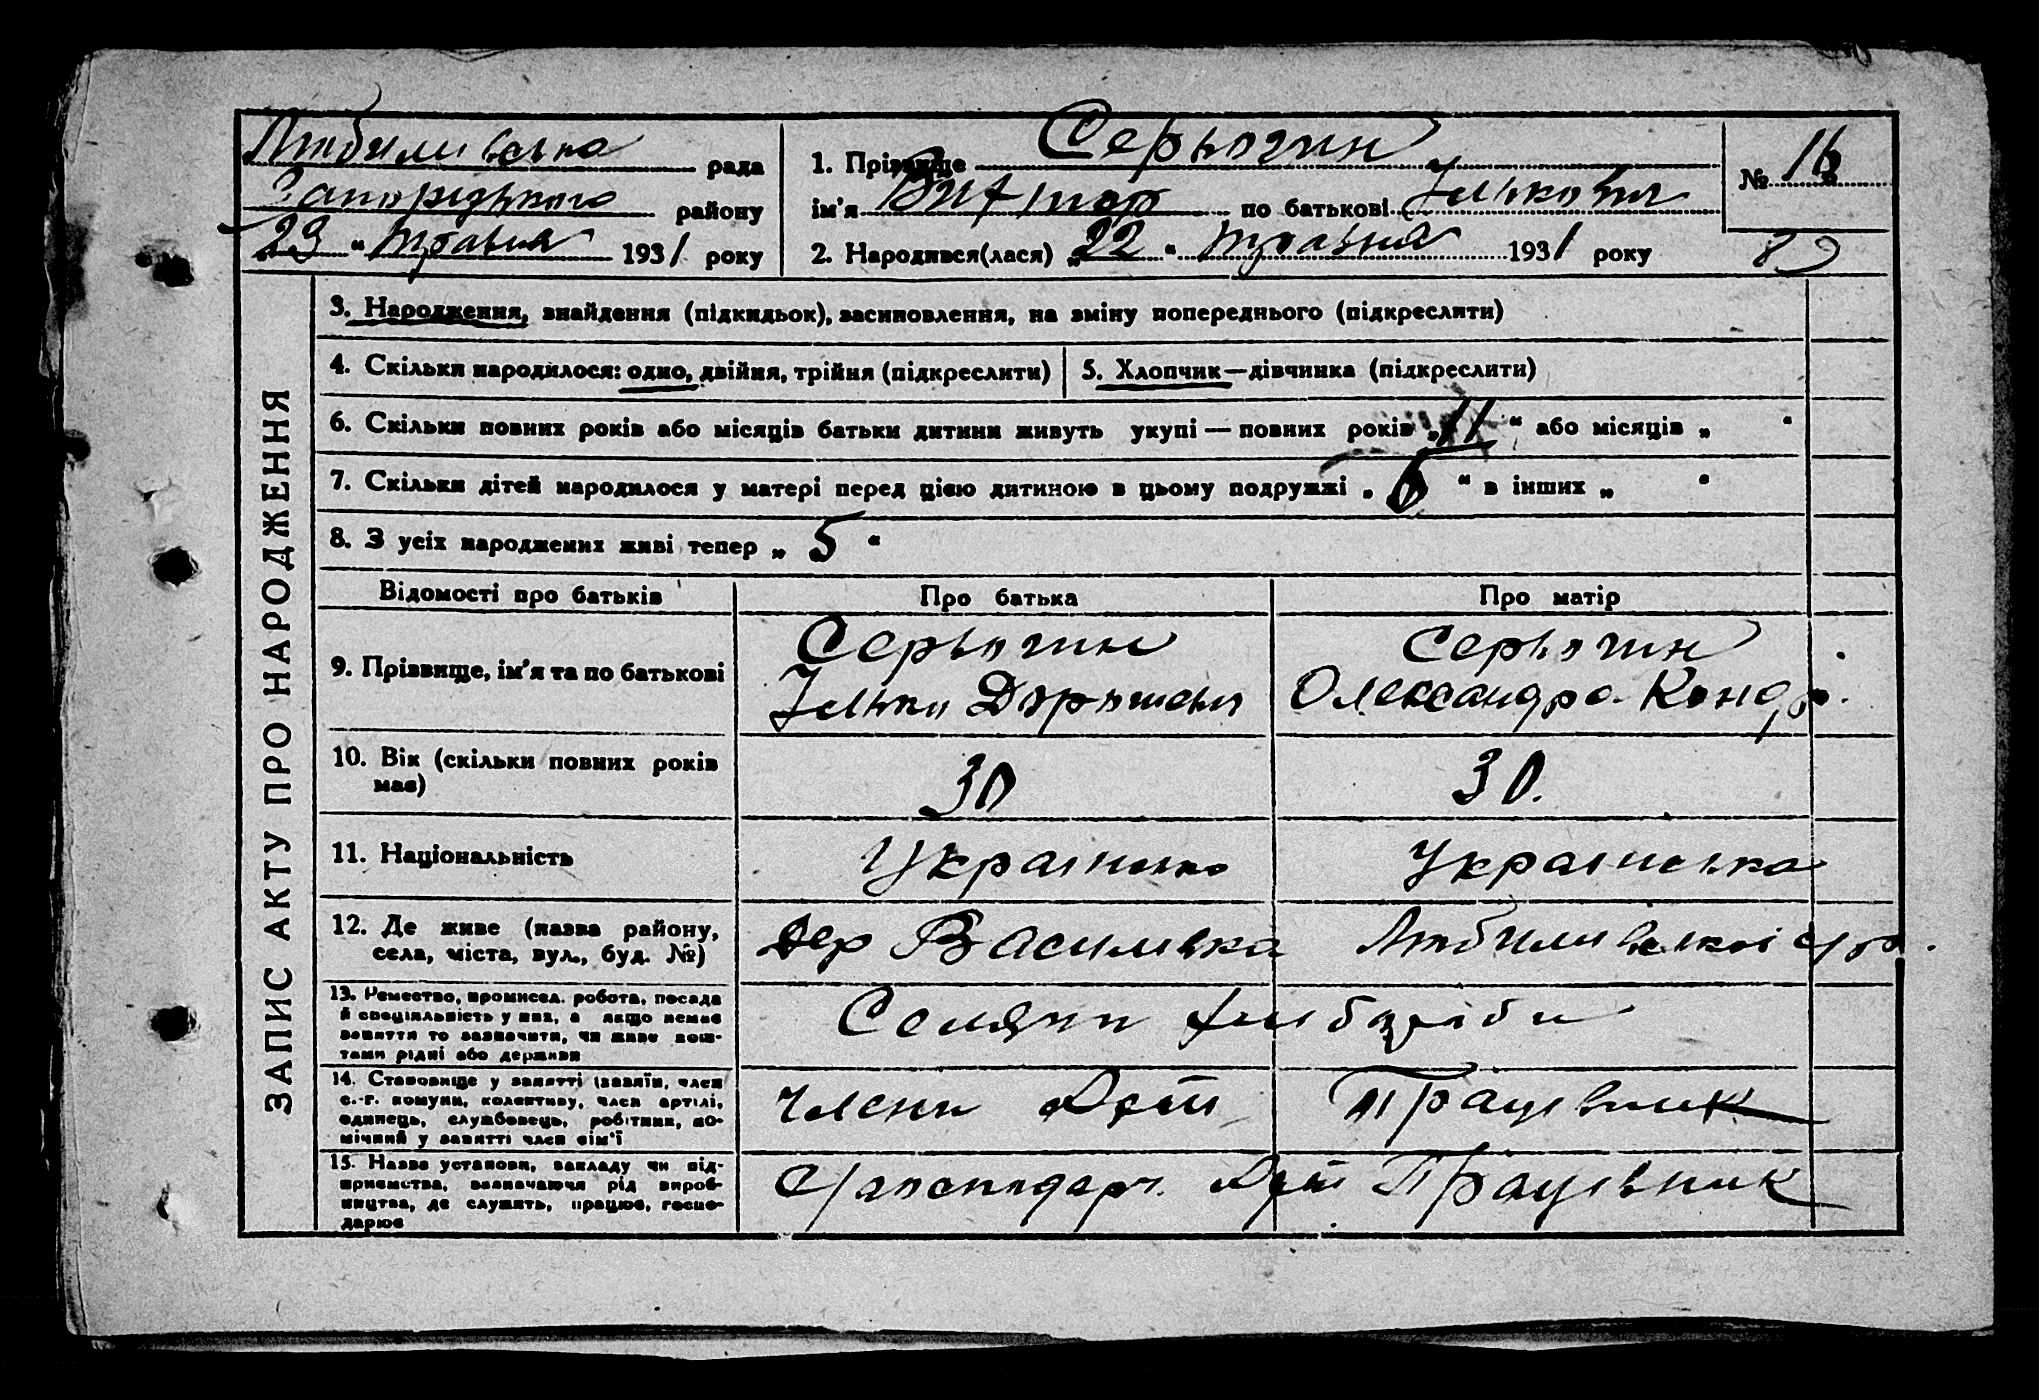 Любимівська рада
Запорізького району
„23“ травня 1931 року
1. Прізвище Серьогин
ім'я Виктор по батькові Ількович
2. Народився(лася) „22“ травня 1931 року
№ 16
89
ЗАПИС АКТУ ПРО НАРОДЖЕННЯ
3. Народження, знайдення (підкидьок), засиновлення, на зміну попереднього (підкреслити)
4. Скільки народилося: одно, двійня, трійня (підкреслити)
5. Хлопчик—дівчинка (підкреслити)
6. Скільки повних років або місяців батьки дитини живуть укупі — повних років „11“ або місяців „ “
7. Скільки дітей народилося у матері перед цією дитиною в цьому подружжі „6“ в інших „ “
8. З усіх народжених живі тепер „5“
Відомості про батьків
Про батька
Про матір
9. Прізвище, ім'я та по батькові
Серьогин
Ілько
Серьогин
Олександра Кондр.
10. Вік (скільки повних років
має)
30
30.
11. Національність
Українка
12. Де живе (назва району,
села, міста, вул., буд. №)
дер Василівка
13. Ремество, промисел. робота, посада
й спеціяльність у них, а якщо немає
заняття то зазначити, чи живе кош-
тами рідні або держави
Селяни хлибороби
14. Становище у занятті (хазяїн, член
с.-г. комуни, колективу, член артілі,
одинець, службовець, робітник, по-
мічний у занятті член сім'ї
Члени Арт Працівник
15. Назва установи, закладу чи під-
приємства, зазначаючи рід вироб-
ництва, де служить, працює, госпо-
дарює
Арт Працівник